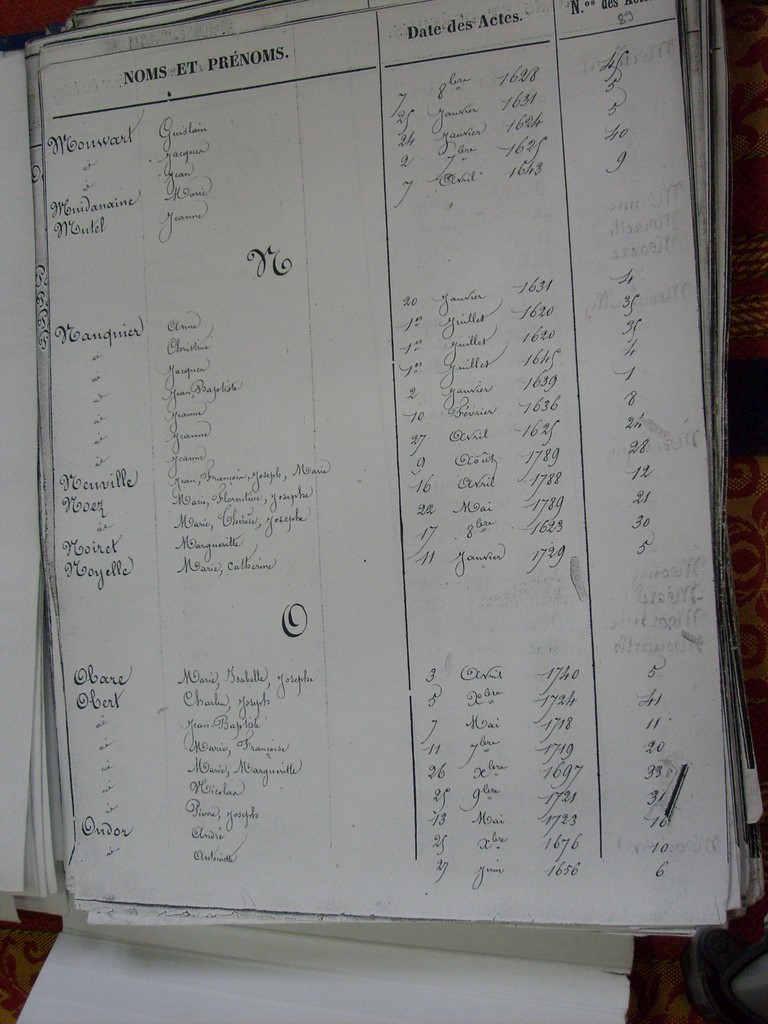 NOMS ET PRÉNOMS. Date des Actes. N.os des Actes
89
Mouwart Guislain 7 8bre 1628 45
id Jacques 25 Janvier 1631 5
id Jean 24 Janvier 1624 5
Muidanaine Marie 2 7bre 1625 40
Mutel Jeanne 7 Avril 1643 9
N
Nanquier Anne 20 Janvier 1631 4
id Christine 1er Juillet 1620 35
id Jacques 1er Juillet 1620 35
id Jean Baptiste 1er Juillet 1645 4
id Jeanne 2 Janvier 1639 1
id Jeanne 10 Février 1636 8
id Jeanne 27 Avril 1625 24
Neuville Jean, François, Joseph, Marie 9 Août 1789 28
Noez Marie, Florentine, Josephe 16 Avril 1788 12
id Marie, Thérèse, Josephe 22 Mai 1789 21
Noiret Margueritte 17 8bre 1623 30
Noyelle Marie, Catherine 11 Janvier 1729 5
O
Obare Marie, Isabelle, Josephe 3 Avril 1740 5
Obert Charles, Joseph 5 Xbre 1724 41
id Jean Baptiste 7 Mai 1718 11
id Marie, Françoise 11 7bre 1719 20
id Marie, Margueritte 26 xbre 1697 33
id Nicolas 25 9bre 1721 31
id Pierre, Joseph 13 Mai 1723 16
Oudor André 25 Xbre 1676 10
id Antoinette 27 Juin 1656 6